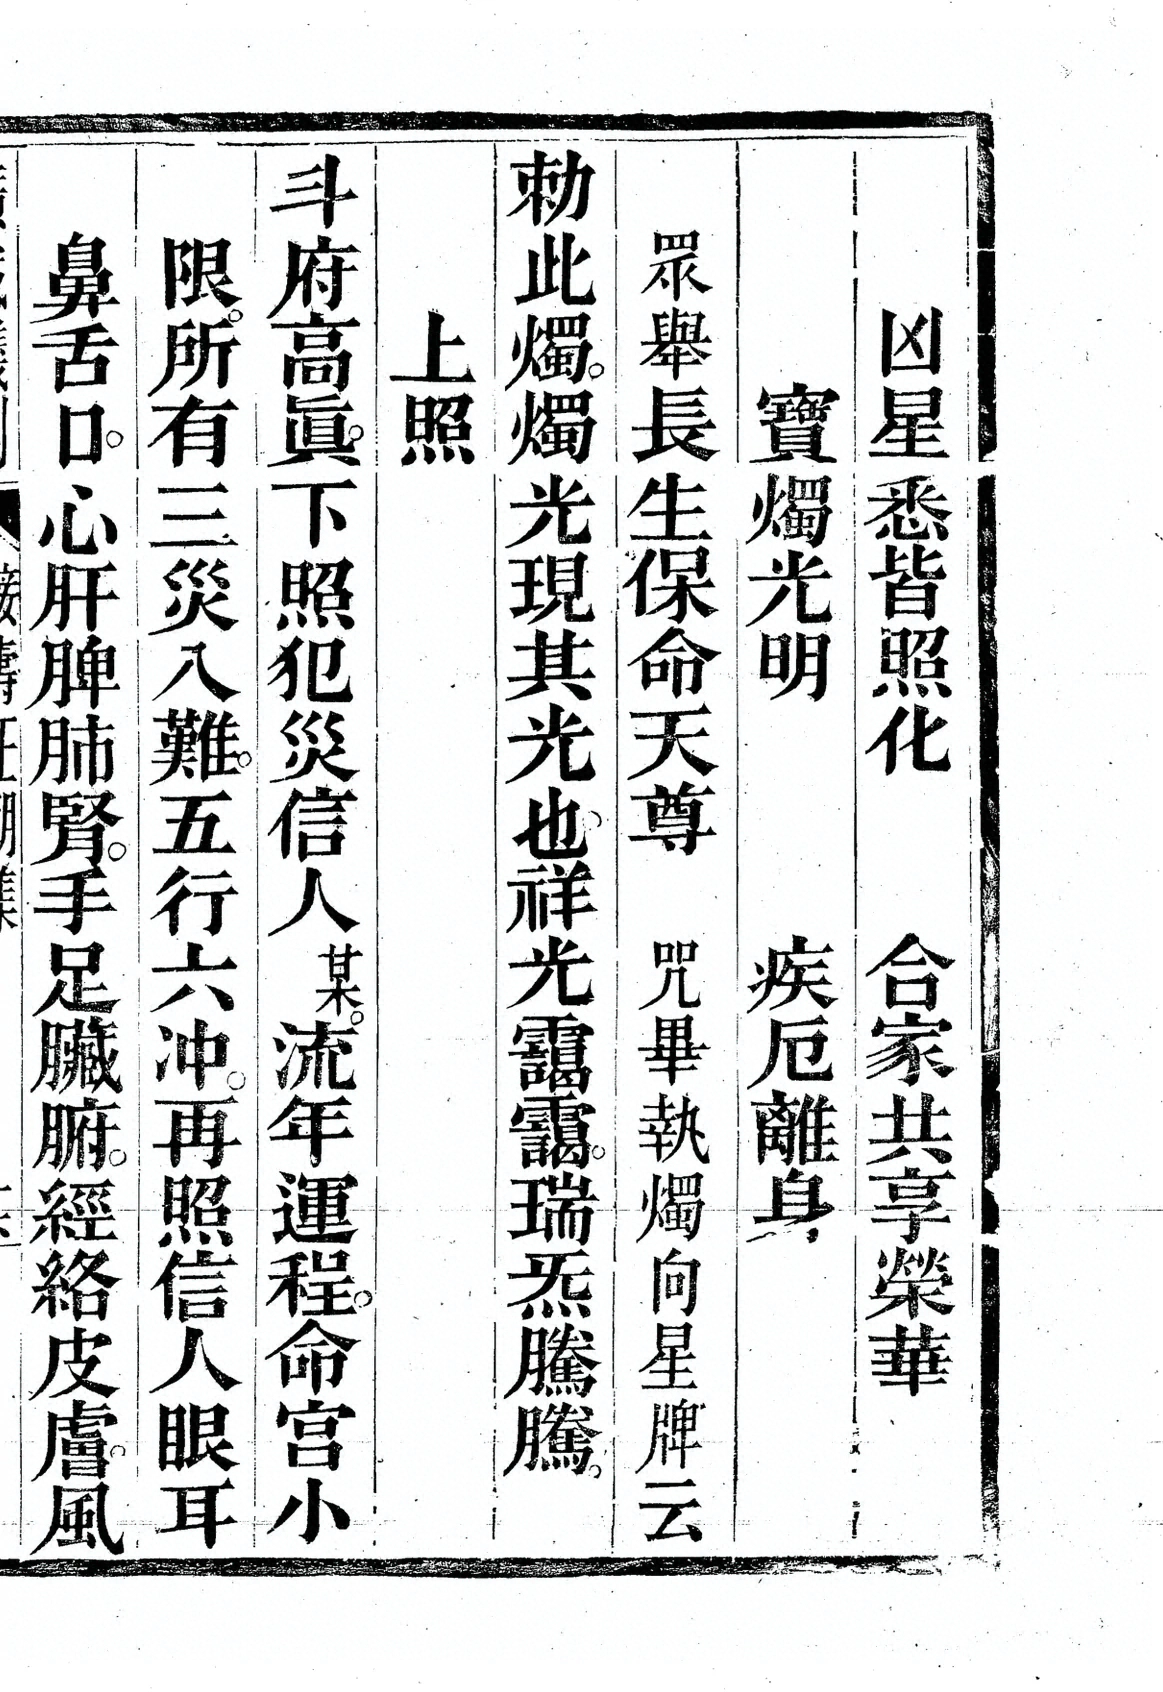 凶星悉皆照化　合家共享榮華
寶燭光明　疾厄離身
眾舉長生保命天尊　咒畢執燭向星牌云
勅此燭。燭光現其光也、祥光靄靄。瑞炁騰騰。
上照
斗府高眞。下照犯災信人某。流年運程。命宫小
限。所有三災八難。五行六冲。再照信人眼耳
鼻舌口。心肝脾肺腎。手足臟腑。經絡皮膚。風